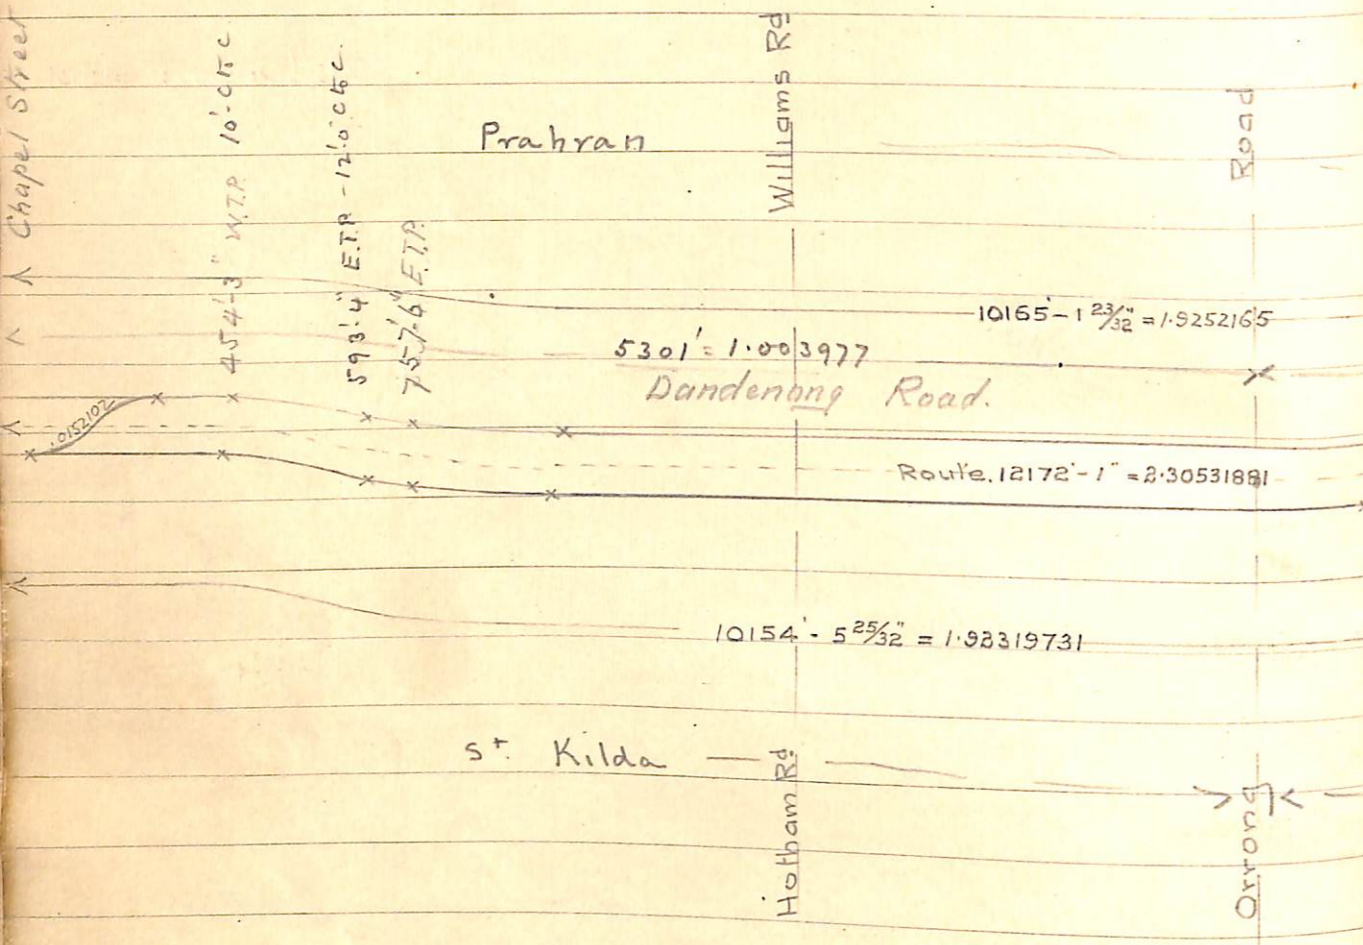 Chapel Street
454'-3" W.T.P. 10'-C to C
593'-4" E.T.P. - 12'.0" C to C.
757'.6" E.T.P.
Prahran
Williams Rd
Road
10165' - 1 23/32" = 1.9252165
5301' = 1.003977
Dandenong Road.
.0152102
Route. 12172' - 1" = 2.30531881
10154' - 5 25/32" = 1.92319731
St. Kilda
Hotham Rd.
Orrong